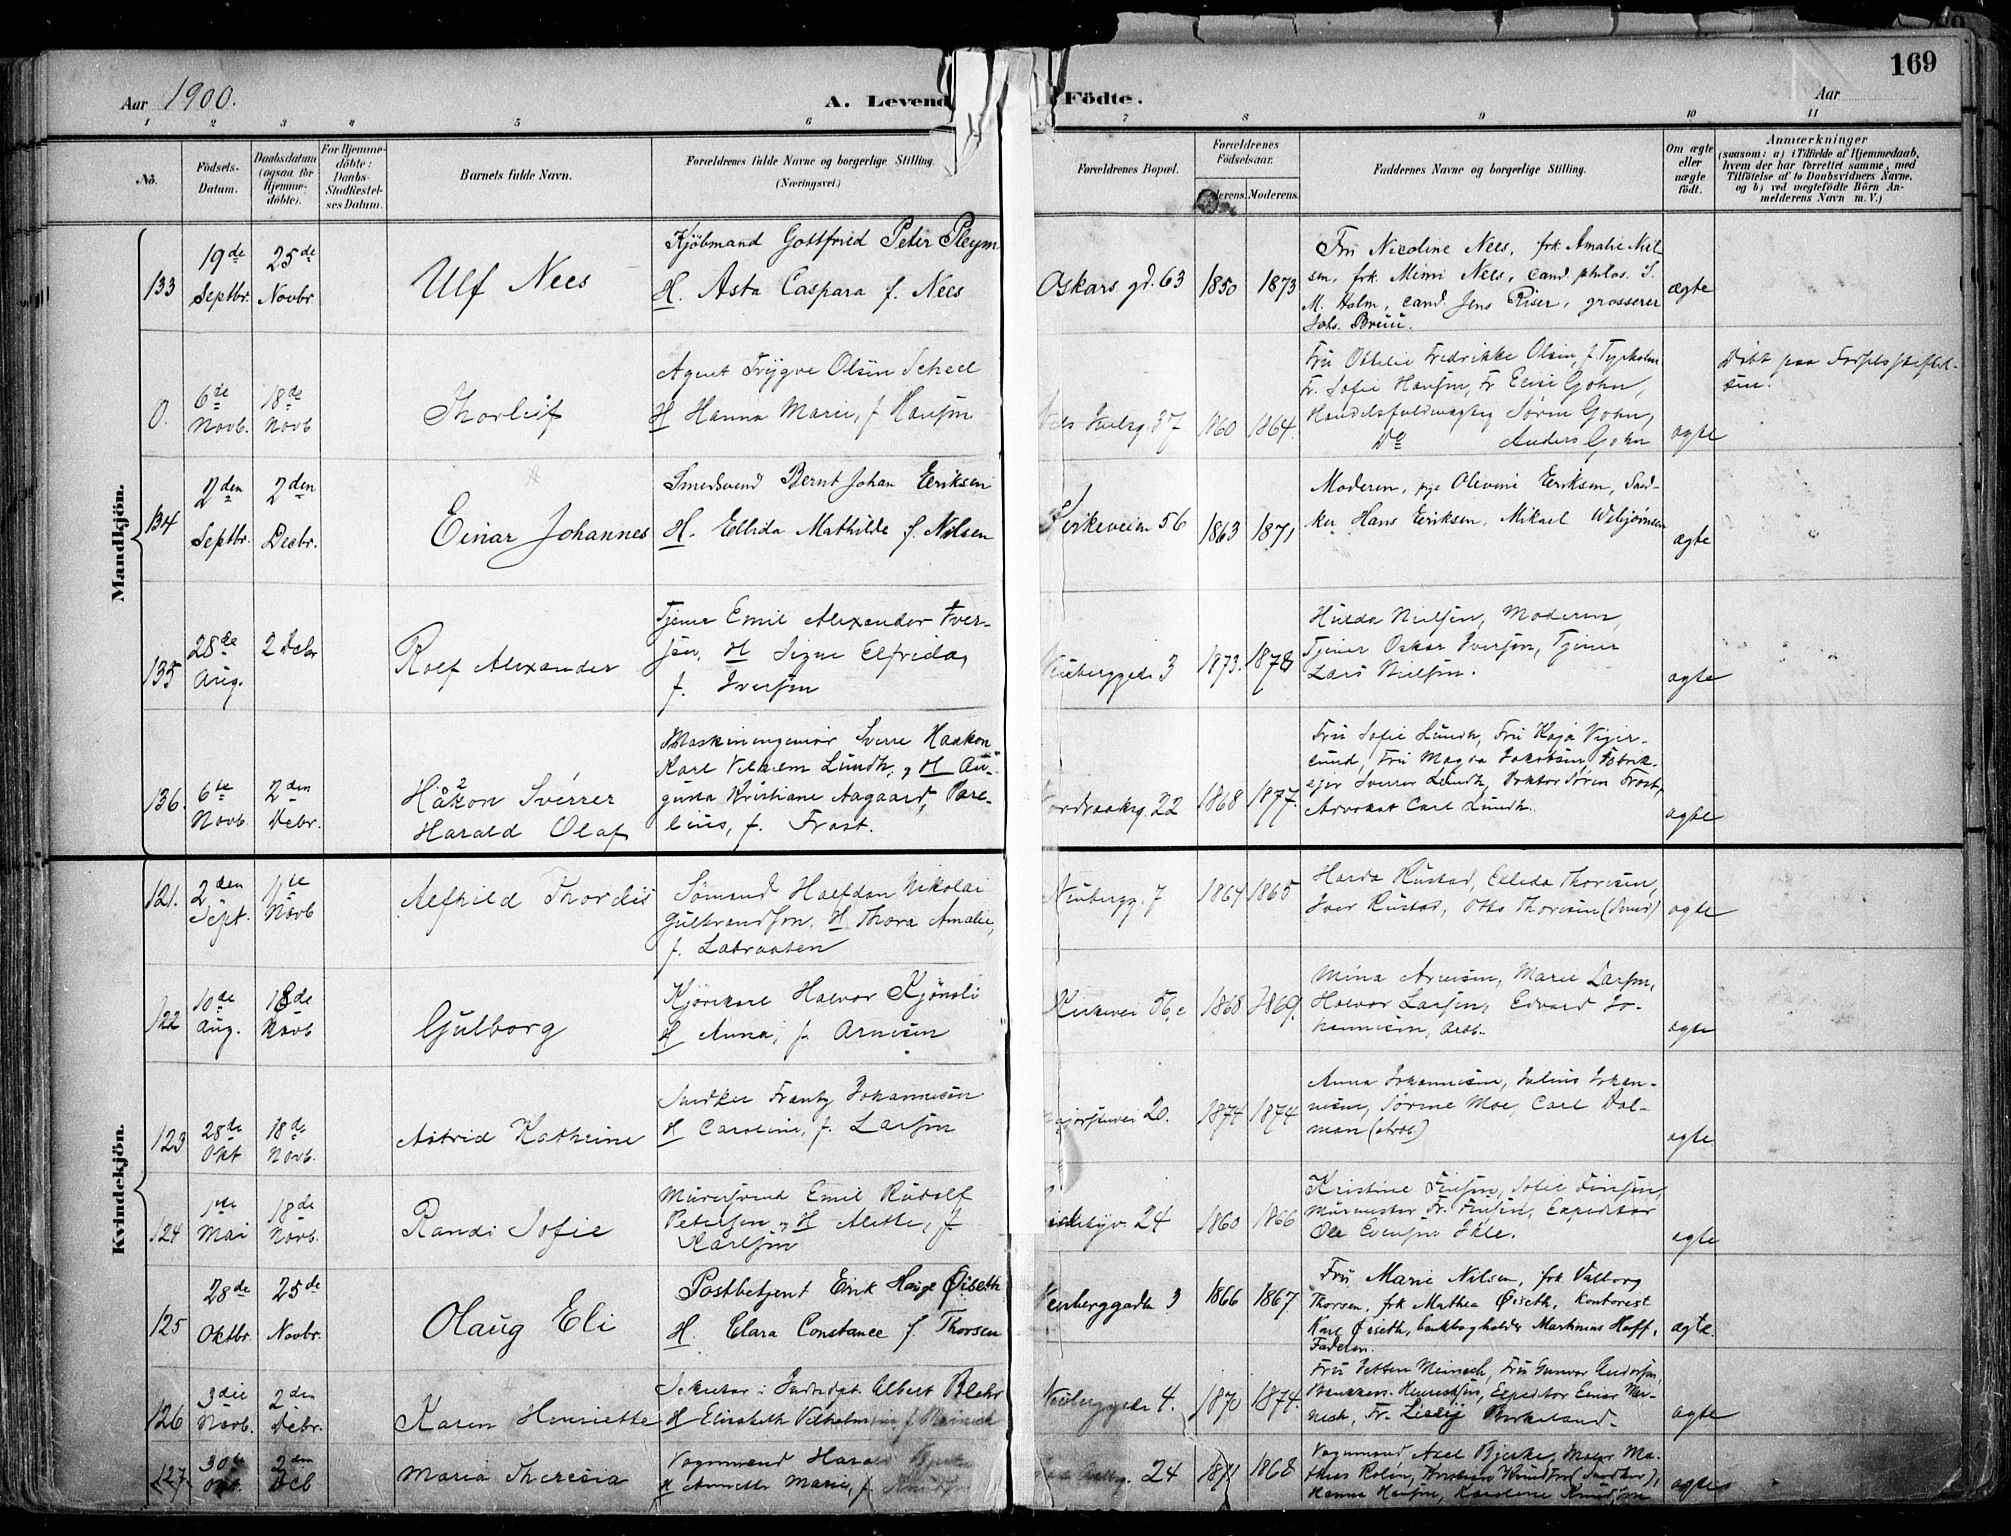 169
Aar 1900. A. Levend Födte. Aar
1 2 3 4 5 6 7 8 9 10 11
No. Födsels-Datum. Daabsdatum (ogsaa for Hjemme-döbte). For Hjemme-döbte: Daabs-Stadfæstel-ses Datum. Barnets fulde Navn. Forældrenes fulde Navne og borgerlige Stilling. (Næringsvei.) Forældrenes Bopæl. Forældrenes Födselsaar. Moderens. Faddernes Navne og borgerlige Stilling. Om ægte eller uægte födt. Anmærkninger (saasom: a) i Tilfælde af Hjemmedaab, hvem der har forrettet samme, med Tilföielse af to Daabsvidners Navne, og b) ved uægtefödte Börn An-melderens Navn m. V.)
Mandkjön.
133 19de Septbr. 25de Novbr. Ulf Nees
Kjöbmand Gottfried Peter Pleym
H. Asta Caspara f. Nees
Oskars gd. 63 1850 1873
Fru Nicoline Nees, frk. Amalie Niel
sen, frk. Mimi Nees, cand. philos. S.
M. Holm, cand. Jens Riser, grosserer
Johs. Bruu.
ægte
0. 6te Novb. 18de Novb Thorleif
Agent Trygve Olsen Scheel
H Hanna Marie, f. Hansen
87 1860 1864.
Fru Ottilie Fredrikke Olsen, f. Tyrholm
Fr. Sofie Hansen, Fr. Elise Gohn,
Handelsfuldmægtig Sören Gohn,
Do Anders Gohn
ægte
Döbt paa Födselsstiftel-
sen.
134 2den Septbr. 2den Decbr. Einar Johannes
Smedsvend Bernt Johan Eriksen
H. Ellida Mathilde f. Nilsen
Kirkeveien 56 1863 1871
Moderen, pige Olevine Eriksen, Sned-
ker Hans Eriksen, Mikael
ægte
135 28de Aug. 2 Debr Rolf Alexander
Tjener Emil Alexander Iver-
sen, H Signe Elfrida,
f. Iversen
Neuberggdn 3 1873. 1878
Hulda Nielsen, Moderen,
Tjener Oskar Iversen, Tjener
Lars Nielsen.
ægte
136. 6te Novb. 2den Debr. Håkon Sverrer
Harald Olaf
Maskiningeniör Sverre Haakon
Karl Vilhelm Lundh, og H Au-
gusta Kristiane Aagaard, Pare-
lius, f. Frost.
Nordraaksg. 22 1868 1877.
Fru Sofie Lundh, Fru Kaja Viger-
lund, Fru Magda Jakobsen, Fabrik-
ejer Sverre Lundh, Doktor Sören Frost,
Advokat Carl Lundh.
ægte
Kvindekjön.
121. 2den Sept. 11te Novb Alfhild Thordis
Sömand Halfdan Nikolai
Gulbrandsen, H Thora Amalie,
f. Labraaten
Neubergg. 7 1864 1865
Harda Rustad, Ellida Thoresen,
Iver Rustad, Otto Thoresen (Smed)
ægte
122 10de Aug. 18de Novb Gulborg
Kjörekarl Halvor Kjönsli
H Anna, f. Arnesen
Kirkevei 56, c 1868 1869.
Mina Arnesen, Marie Larsen,
Halvor Larsen, Edvard Jo-
hannesen, Arbb.
ægte
123 28de Okt 18de Novb. Astrid Kathrine
Snedker Frantz Johannesen
H Caroline, f. Larsen
20. 1874 1874
Anna Johannesen, Julius Johan-
nesen, Sörine Moe, Carl Dal-
man
ægte
124 1ste Mai 18de Novb. Randi Sofie
Murersvend Emil Rudolf
Petersen og H Alette, f.
Karlsen
24 1860 1866
Kristine Finsen, Sofie Finsen,
Murmester Fr. Finsen, Expeditör
Ole Evensen Ihle.
ægte
125 28de Oktbr. 25de Novbr. Olaug Eli
Postbetjent Erik Hauge Öiseth
H. Clara Constance f. Thorsen
Neuberggadn 3 1866 1867
Fru Marie Nilsen, frk. Valborg
Thorsen, frk Mathea Öiseth, kontorist
Karl Öiseth, bankbogholder Martinius Hoff,
Faderen.
ægte.
126 3die Novb. 2den Debr. Karen Henriette
Albert Blehr
H Elisabeth Vilhelmine f. Meinich
Neuberggdn 4. 1870 1874.
Fru Jetten Meinich, Fru Gunvor
Expeditör Einar Mei-
nich, Fr. Lissy Birkeland
ægte
127. 30te 2den Deb Maria Theresia
Vognmand Harald Bjerke
H Annette Marie, f. Knudsen
24 1871 1868
Vognmand Axel Bjerke, Maler Ma-
thias Rolén,
Hanna Hansen, Karoline Knudsen
ægte